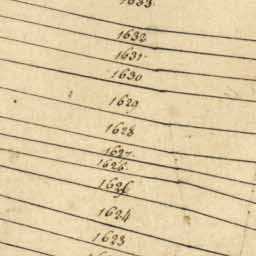 1633
1632
1631.
1630
1629
1628
1627.
1626.
1625
1624
1623